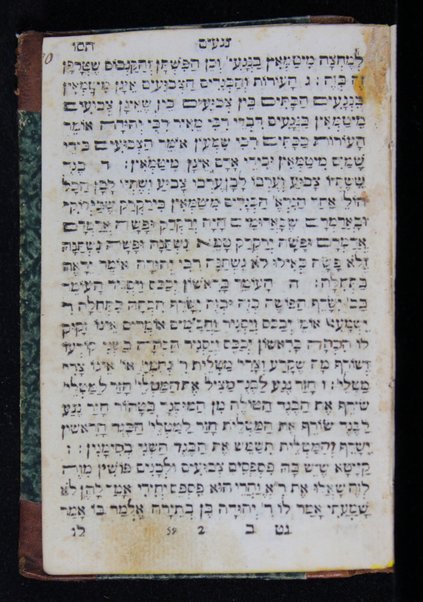 נגעים
למחצה מיטמאין בנגעי' וכן הפשתן והקנבוס שטרפן
זה בזה : ג העורות והבגדים הצבועים אינן מיטמאין
בנגעים הבתים בין צבועים בין שאינן צבועים
מיטמאין בנגעים דברי רבי מאיר רבי יהודה אומר
העורות כבתים רבי שמעון אומר הצבועים בידי
שמים מיטמאין ובידי אדם אינן מיטמאין : ד בגד
ששתיו צבוע וערבו לבן ערבו צבוע ושתיו לבן הכל
הולך אחר הנראה הבגדים מיטמאין בירקרק שבירוקי
ובאדמדם שבאדומים היה ירקרק ופשה אדמדם
אדמדם ופשה ירקרק טמא נשתנה ופשה נשתנה
ולא פשה כאילו לא נשתנה רבי יהודה אומר יראה
בתחלה : ה העומד בראשון יכבס ויסגיר העומד
בב' ישרף הפושה בזה ובזה ישרף הכהה בתחלה ר'
ישמעאל אומ' יכבס ויסגיר וחכמים אומרים אינו זקוק
לו הכהה בראשון יכבס ויסגיר הכהה בשני קורעו
ושורף מה שקרע וצריך מטלית ר' נחמיה או' אינו צריך
מטלי' : ו חזר נגע לבגד מציל את המטלי' חזר למטלי'
שורף את הבגד הטולה מן המוסגר בטהור חזר נגע
לבגד שורף את המטלית חזר למטלי' הבגד הראשון
ישרף והמטלית תשמש את הבגד השני בסימנין : ז
קייטא שיש בה פספסים צבועים ולבנים פושין מזה
לזה שאלו את ר"א והרי הוא פספס יחידי אמר להן לא
שמעתי אמר לו ר' יהודה בן בתירה אלמד בו אמר
נט ב 2 59 לו